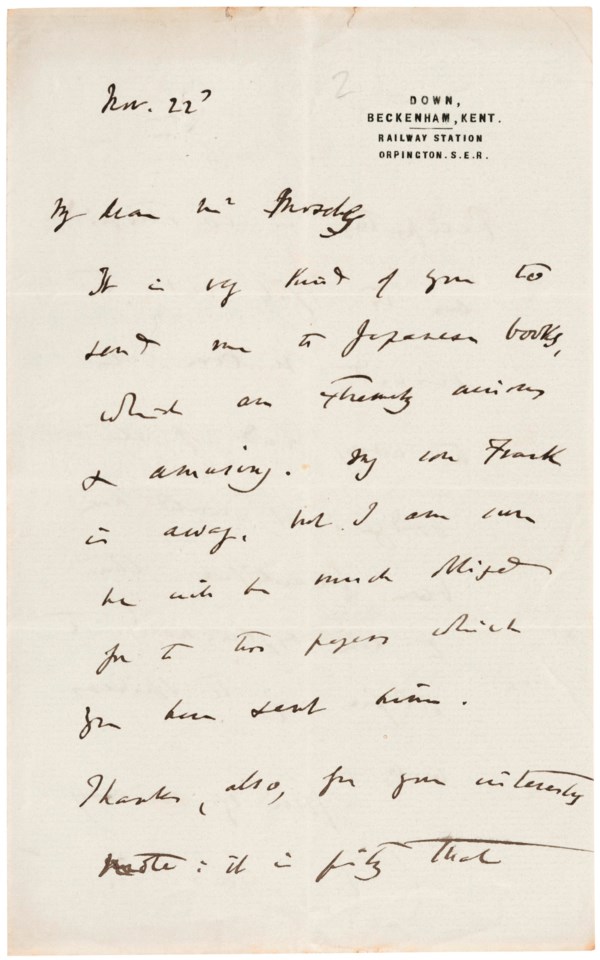 2
Nov. 22ᵈ
DOWN,
BECKENHAM, KENT.
RAILWAY STATION
ORPINGTON. S.E.R.
My dear Mʳ Moseley
It is very kind of you to
send me the Japanese books,
which are extremely curious
& amusing. My son Frank
is away, but I am sure
he will be much obliged
for the two papers which
you have sent him.
Thanks, also, for your interesting
note: it is pity that